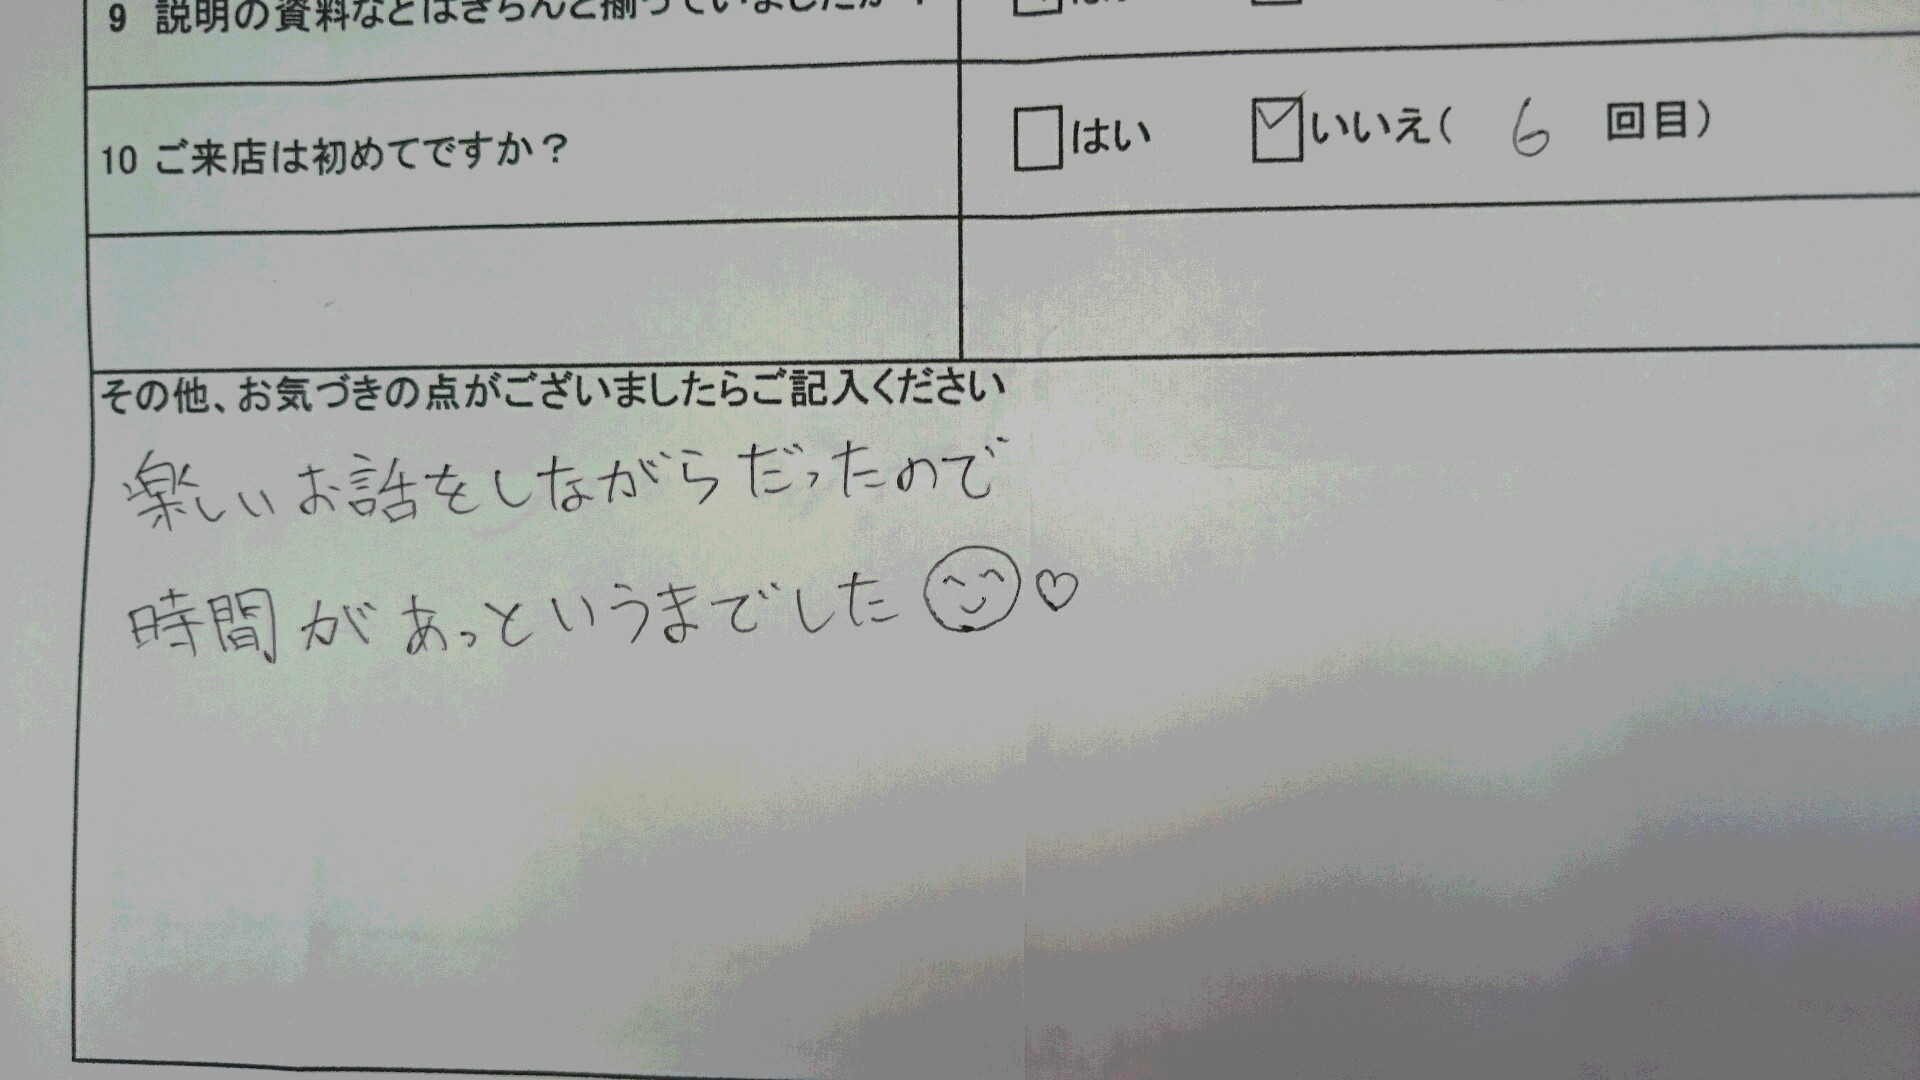 9 説明の資料などはきちんと揃っていましたか？ はい
10 ご来店は初めてですか？ はい いいえ( 6 回目)
その他、お気づきの点がございましたらご記入ください
楽しいお話をしながらだったので
時間があっというまでした